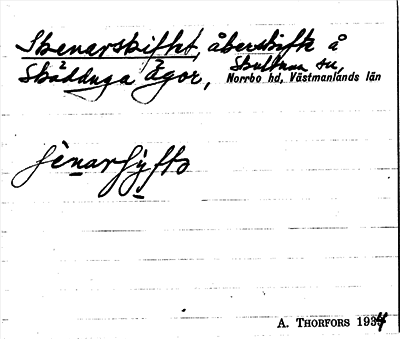 Skenarskiftet, åkerskifte å
Skäddunga ägor, Skultuna sn,
Norrbo hd, Västmanlands län
A. THORFORS 1934